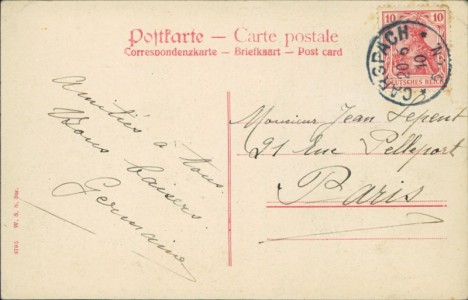 Postkarte — Carte postale
Correspondenzkarte — Briefkaart — Post card
10 10
DEUTSCHES REICH
CARSPACH
20 6
10
Amitiés à Tous.
Bons baisers.
Germaine
Monsieur Jean Serent
21 Rue Pelleport
Paris
W. S. u. Str.